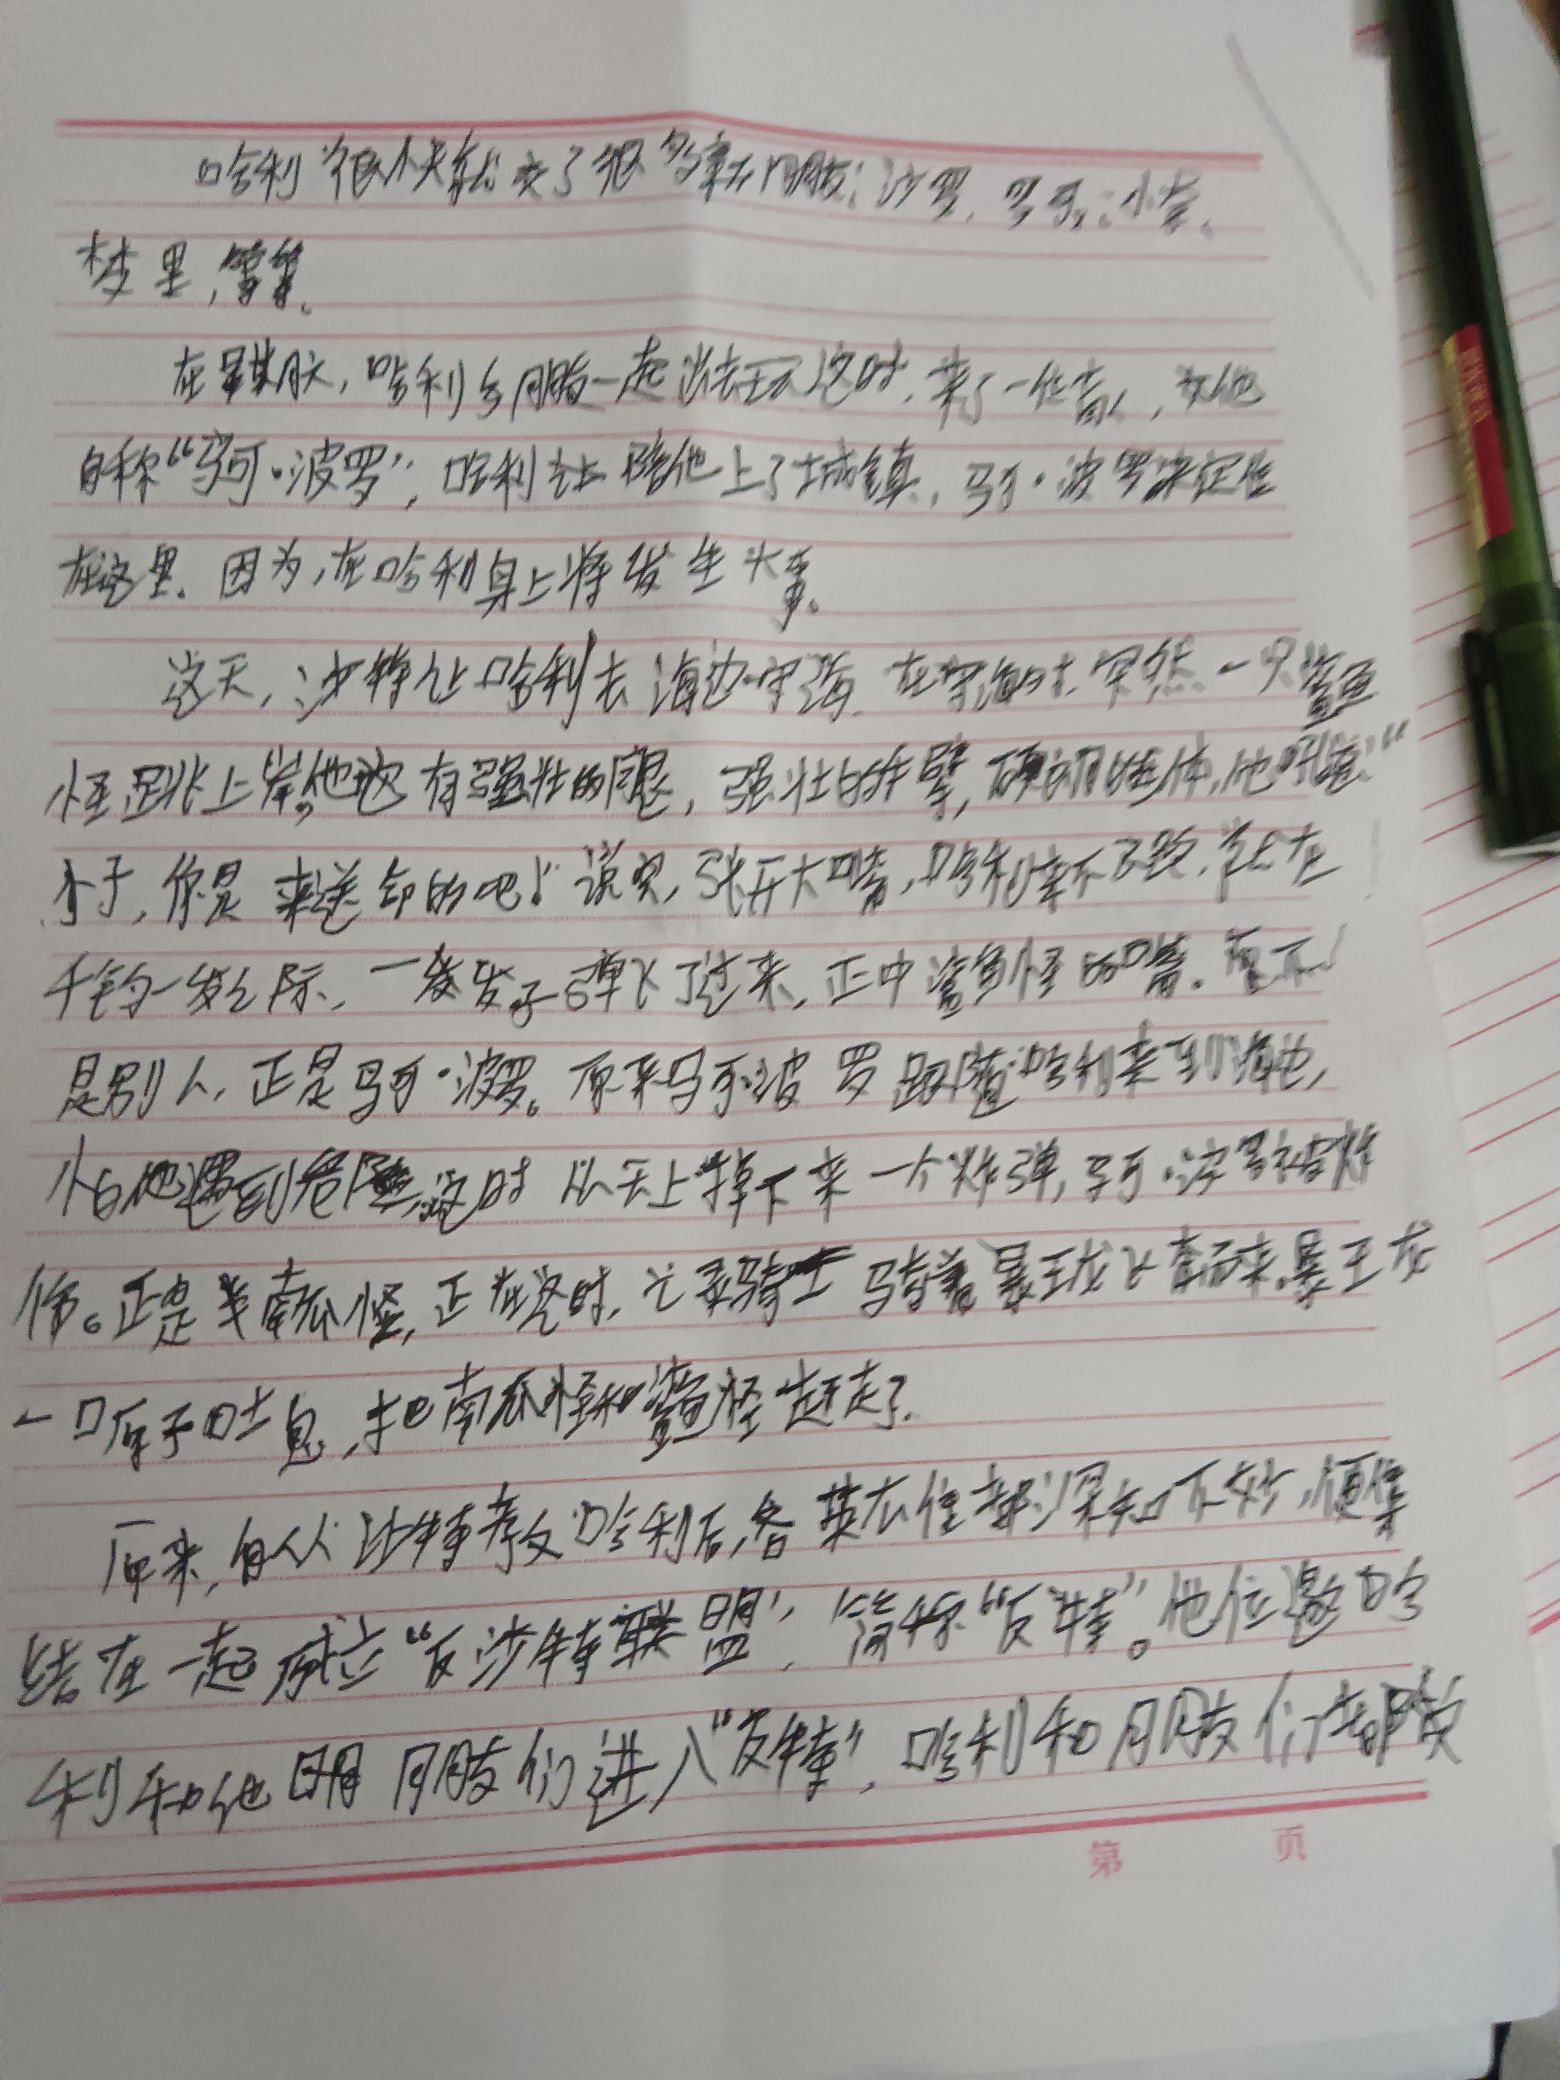 哈利很快就交了很多新朋友：沙罗、罗、小
梦里，等等。
在某天，哈利与朋友一起出去玩，这时，来了一位盲人，他
自称“马可·波罗”，哈利陪他上了城镇，马可·波罗决定住
在这里。因为，在哈利身上将发生大事。
这天，沙特让哈利去海边守海，在守海时，突然一只鲨鱼
怪跳上岸，他有强壮的腿，强壮的手臂，身体，他吼道：“
小子，你是来送命的吧！”说完，张开大嘴，哈利来不及跑，就在
千钧一发之际，一发子弹飞了过来，正中鲨鱼怪的嘴。不
是别人，正是马可·波罗。原来马可·波罗跟随哈利来到海边，
怕他遇到危险，这时从天上掉下来一个炸弹，马可·波罗被炸
伤。正是南瓜怪，正在这时，骑士骑着暴王龙飞奔而来，暴王龙
一口原子吐息，把南瓜怪和鲨鱼怪赶走了。
原来，自从沙特教哈利后，各英都深知不妙，便集
结在一起成立“反沙特联盟”，简称“反特”。他们邀哈
利和他朋友们进入“反特”，哈利和朋友们都
第 页